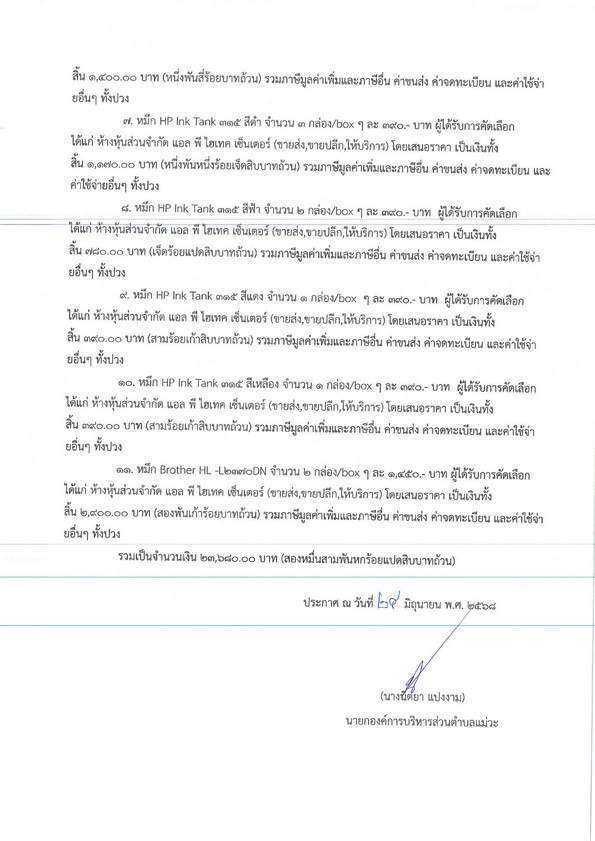 สิ้น ๑,๔๐๐.๐๐ บาท (หนึ่งพันสี่ร้อยบาทถ้วน) รวมภาษีมูลค่าเพิ่มและภาษีอื่น ค่าขนส่ง ค่าจดทะเบียน และค่าใช้จ่า
ยอื่นๆ ทั้งปวง
๗. หมึก HP Ink Tank ๓๑๕ สีดำ จำนวน ๓ กล่อง/box ๆ ละ ๓๙๐.- บาท ผู้ได้รับการคัดเลือก
ได้แก่ ห้างหุ้นส่วนจำกัด แอล พี ไฮเทค เซ็นเตอร์ (ขายส่ง,ขายปลีก,ให้บริการ) โดยเสนอราคา เป็นเงินทั้ง
สิ้น ๑,๑๗๐.๐๐ บาท (หนึ่งพันหนึ่งร้อยเจ็ดสิบบาทถ้วน) รวมภาษีมูลค่าเพิ่มและภาษีอื่น ค่าขนส่ง ค่าจดทะเบียน และ
ค่าใช้จ่ายอื่นๆ ทั้งปวง
๘. หมึก HP Ink Tank ๓๑๕ สีฟ้า จำนวน ๒ กล่อง/box ๆ ละ ๓๙๐.- บาท ผู้ได้รับการคัดเลือก
ได้แก่ ห้างหุ้นส่วนจำกัด แอล พี ไฮเทค เซ็นเตอร์ (ขายส่ง,ขายปลีก,ให้บริการ) โดยเสนอราคา เป็นเงินทั้ง
สิ้น ๗๘๐.๐๐ บาท (เจ็ดร้อยแปดสิบบาทถ้วน) รวมภาษีมูลค่าเพิ่มและภาษีอื่น ค่าขนส่ง ค่าจดทะเบียน และค่าใช้จ่า
ยอื่นๆ ทั้งปวง
๙. หมึก HP Ink Tank ๓๑๕ สีแดง จำนวน ๑ กล่อง/box ๆ ละ ๓๙๐.- บาท ผู้ได้รับการคัดเลือก
ได้แก่ ห้างหุ้นส่วนจำกัด แอล พี ไฮเทค เซ็นเตอร์ (ขายส่ง,ขายปลีก,ให้บริการ) โดยเสนอราคา เป็นเงินทั้ง
สิ้น ๓๙๐.๐๐ บาท (สามร้อยเก้าสิบบาทถ้วน) รวมภาษีมูลค่าเพิ่มและภาษีอื่น ค่าขนส่ง ค่าจดทะเบียน และค่าใช้จ่า
ยอื่นๆ ทั้งปวง
๑๐. หมึก HP Ink Tank ๓๑๕ สีเหลือง จำนวน ๑ กล่อง/box ๆ ละ ๓๙๐.- บาท ผู้ได้รับการคัดเลือก
ได้แก่ ห้างหุ้นส่วนจำกัด แอล พี ไฮเทค เซ็นเตอร์ (ขายส่ง,ขายปลีก,ให้บริการ) โดยเสนอราคา เป็นเงินทั้ง
สิ้น ๓๙๐.๐๐ บาท (สามร้อยเก้าสิบบาทถ้วน) รวมภาษีมูลค่าเพิ่มและภาษีอื่น ค่าขนส่ง ค่าจดทะเบียน และค่าใช้จ่า
ยอื่นๆ ทั้งปวง
๑๑. หมึก Brother HL -L๒๓๗๐DN จำนวน ๒ กล่อง/box ๆ ละ ๑,๔๕๐.- บาท ผู้ได้รับการคัดเลือก
ได้แก่ ห้างหุ้นส่วนจำกัด แอล พี ไฮเทค เซ็นเตอร์ (ขายส่ง,ขายปลีก,ให้บริการ) โดยเสนอราคา เป็นเงินทั้ง
สิ้น ๒,๙๐๐.๐๐ บาท (สองพันเก้าร้อยบาทถ้วน) รวมภาษีมูลค่าเพิ่มและภาษีอื่น ค่าขนส่ง ค่าจดทะเบียน และค่าใช้จ่า
ยอื่นๆ ทั้งปวง
รวมเป็นจำนวนเงิน ๒๓,๖๘๐.๐๐ บาท (สองหมื่นสามพันหกร้อยแปดสิบบาทถ้วน)
ประกาศ ณ วันที่ มิถุนายน พ.ศ. ๒๕๖๘
(นางนิตยา แปงงาม)
นายกองค์การบริหารส่วนตำบลแม่วะ